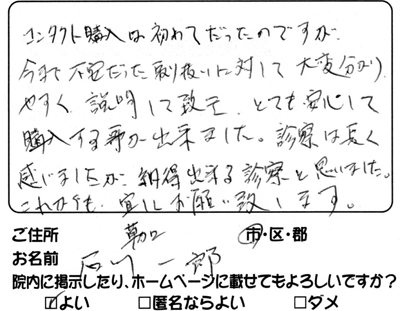 コンタクト購入は初めてだったのですが、
今まで不安だった取り扱いに対して大変分かり
やすく説明して致だき、とても安心して
購入する事が出来ました。診察は長く
感じましたが、納得出来る診察と思いました。
これからも宜しくお願い致します。
ご住所 市・区・郡
お名前 石川一郎
院内に掲示したり、ホームページに載せてもよろしいですか？
☑よい □匿名ならよい □ダメ